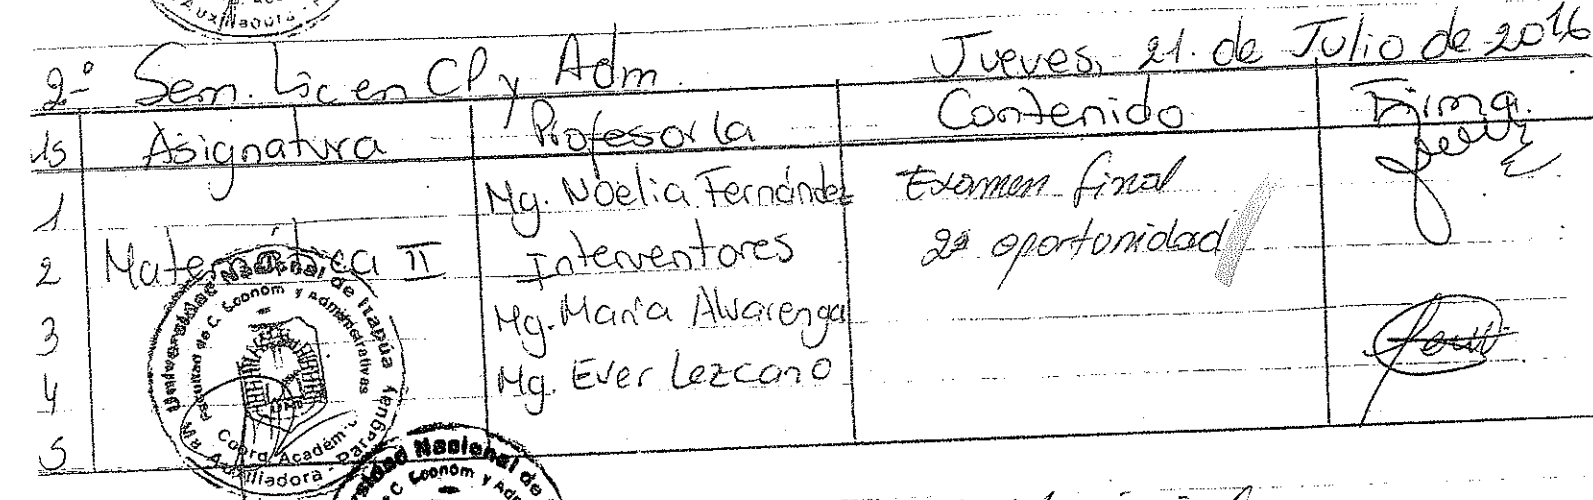 Auxiliadora
2º Sem. Lic en CP y Adm. Jueves, 21 de Julio de 2016
Hs Asignatura Profesor/a Contenido Firma
1 Mg. Noelia Fernández Examen final
2 Matemática II Interventores 2ª oportunidad
3 Mg. María Alvarenga
4 Mg. Ever Lezcano
5
Universidad Nacional de Itapúa
Facultad de C. Económ y Administrativas
UNI
Coord. Académ.
Mª Auxiliadora - Paraguay
Nacional de
C. Económ y